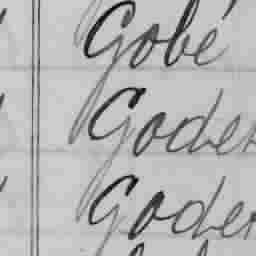 Gobé
Goder
Goder